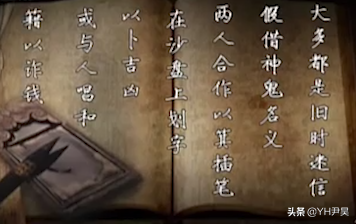 大多都是旧时迷信
假借神鬼名义
两人合作以箕插笔
在沙盘上划字
以卜吉凶
或与人唱和
籍以诈钱
头条 @YH尹昊